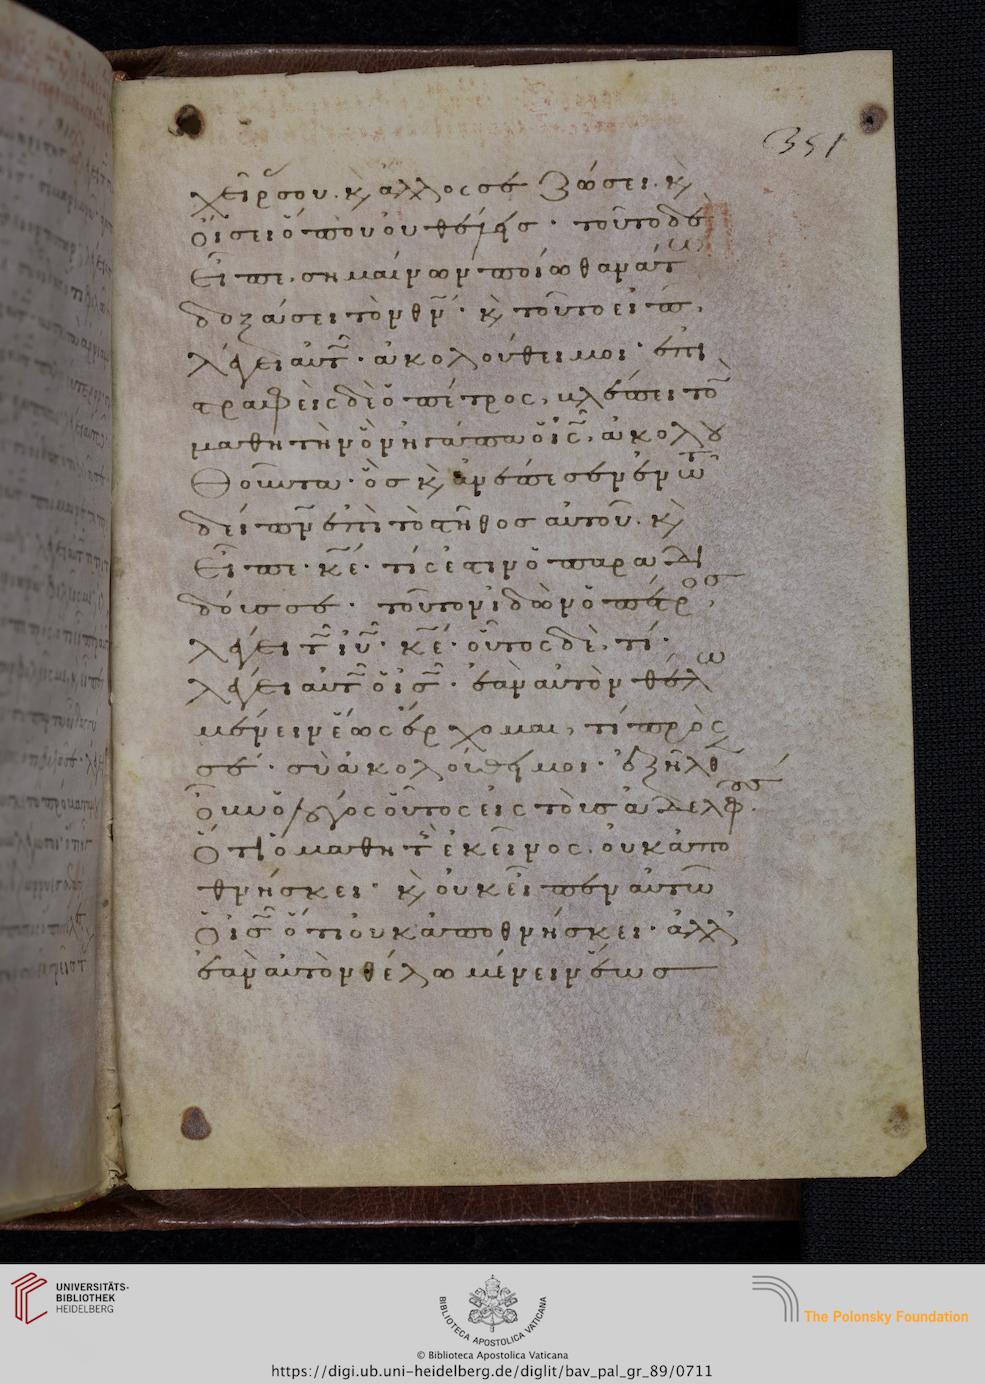 351
χεῖράς σου· κ(αὶ) ἄλλος σε ζώσει· κ(αὶ)
οἴσει ὅπου οὐ θέλεις· τοῦτο δὲ
εἶπε, σημαίνων ποίω θανάτω
δοξάσει τὸν θν· κ(αὶ) τοῦτο εἰπὼ(ν),
λέγει αὐτῶ· ἀκολούθει μοι· ἐπι
στραφεὶς δὲ ὁ πέτρος, βλέπει τὸν
μαθητὴν ὃν ἠγάπα ὁ ις, ἀκολου
θοῦντα· ὃς κ(αὶ) ἀνέπεσεν ἐν τῶ
δείπνω ἐπὶ τὸ στῆθος αὐτοῦ· κ(αὶ)
εἶπε· κε· τίς ἐστιν ὁ παραδι
δούς σε· τοῦτον ἰδὼν ὁ πέτρος,
λέγει τῶ ιυ· κε· οὗτος δὲ, τί·
λέγει αὐτῶ ὁ ις· ἐὰν αὐτὸν θέλω
μένειν ἕως ἔρχομαι, τί πρὸς
σέ· σὺ ἀκολούθει μοι· ἐξῆλθεν
οὖν ὁ λόγος οὗτος εἰς τοὺς ἀδελφοὺς·
ὅτι ὁ μαθητὴς ἐκεῖνος, οὐκ ἀπο
θνήσκει· κ(αὶ) οὐκ εἶπεν αὐτῶ
ὁ ις ὅτι οὐκ ἀποθνήσκει· ἀλλ'
ἐὰν αὐτὸν θέλω μένειν ἕως
UNIVERSITÄTS-
BIBLIOTHEK
HEIDELBERG
BIBLIOTECA APOSTOLICA VATICANA
The Polonsky Foundation
© Biblioteca Apostolica Vaticana
https://digi.ub.uni-heidelberg.de/diglit/bav_pal_gr_89/0711